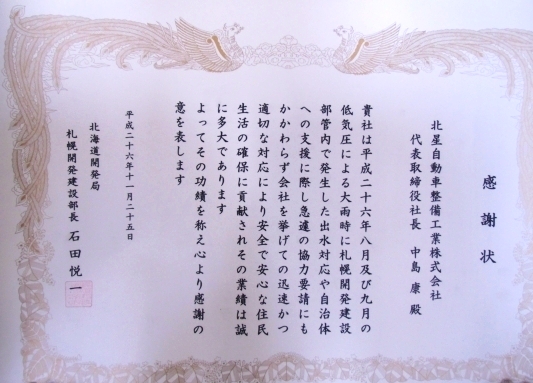 感謝状
北星自動車整備工業株式会社
代表取締役社長　中島　康　殿
貴社は平成二十六年八月及び九月の
低気圧による大雨時に札幌開発建設
部管内で発生した出水対応や自治体
への支援に際し急遽の協力要請にも
かかわらず会社を挙げての迅速かつ
適切な対応により安全で安心な住民
生活の確保に貢献されその業績は誠
に多大であります
よってその功績を称え心より感謝の
意を表します
平成二十六年十一月二十五日
北海道開発局
札幌開発建設部長　石田悦一